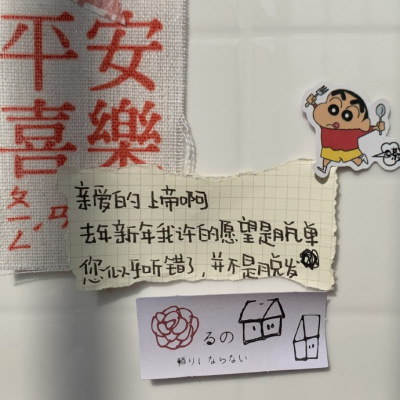 平安
喜樂
亲爱的上帝啊
去年新年我许的愿望是脱单
您似乎听错了，并不是脱发
るの
頼りにならない